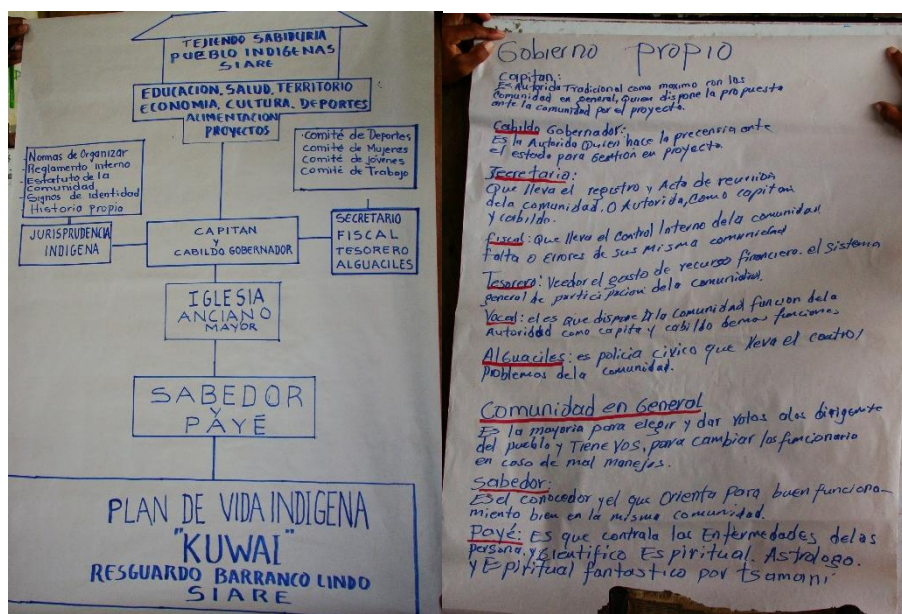 TEJIENDO SABIDURIA
PUEBLO INDIGENAS
SIARE
EDUCACION, SALUD, TERRITORIO
ECONOMIA, CULTURA, DEPORTES
ALIMENTACION
PROYECTOS
-Normas de Organizar
-Reglamento interno
-Estatuto de la
Comunidad
-Signos de identidad
Historia Propio
-Comité de Deportes
Comité de Mujeres
Comité de Jóvenes
Comité de Trabajo
JURISPRUDENCIA
INDIGENA
CAPITAN
Y
CABILDO GOBERNADOR
SECRETARIO
FISCAL
TESORERO
ALGUACILES
IGLESIA
ANCIANO
MAYOR
SABEDOR
Y
PAYÉ
PLAN DE VIDA INDIGENA
"KUWAI"
RESGUARDO BARRANCO LINDO
SIARE
Gobierno propio
Capitan:
Es Autorida Tradicional como maximo con las
Comunidad en general, Quien dispone la propuesta
ante la comunidad por el proyecto.
Cabildo Gobernador:
Es la Autorida Quien hace la precencia ante
el estado para Gestión en proyecto
Secretario:
Que lleva el registro y Acta de reunión
dela comunidad. O Autorida, como capitan
y cabildo.
Fiscal: Que lleva el Control Interno dela comunidad
falta o Errores de sus Misma comunidad
Tesorero: Veedor el gasto de recurso financiero. el Sistema
general de participacion dela comunidad.
Vocal: el es Que dispone la comunidad funcion dela
Autoridad como capita y cabildo demas funciones
Alguaciles: es policia civico que lleva el control
problemas dela comunidad.
Comunidad en General
Es la mayoria para elegir y dar votos alos dirigente
del pueblo y Tiene Vos, para cambiar los funcionario
en caso de mal manejos.
Sabedor:
Es el conocedor y el que Orienta para buen funciona-
miento bien en la misma comunidad.
Payé: Es que contrala las Enfermedades delas
persona, y Cientifico Espiritual. Astrologo.
y Espiritual fantastico por tsamani